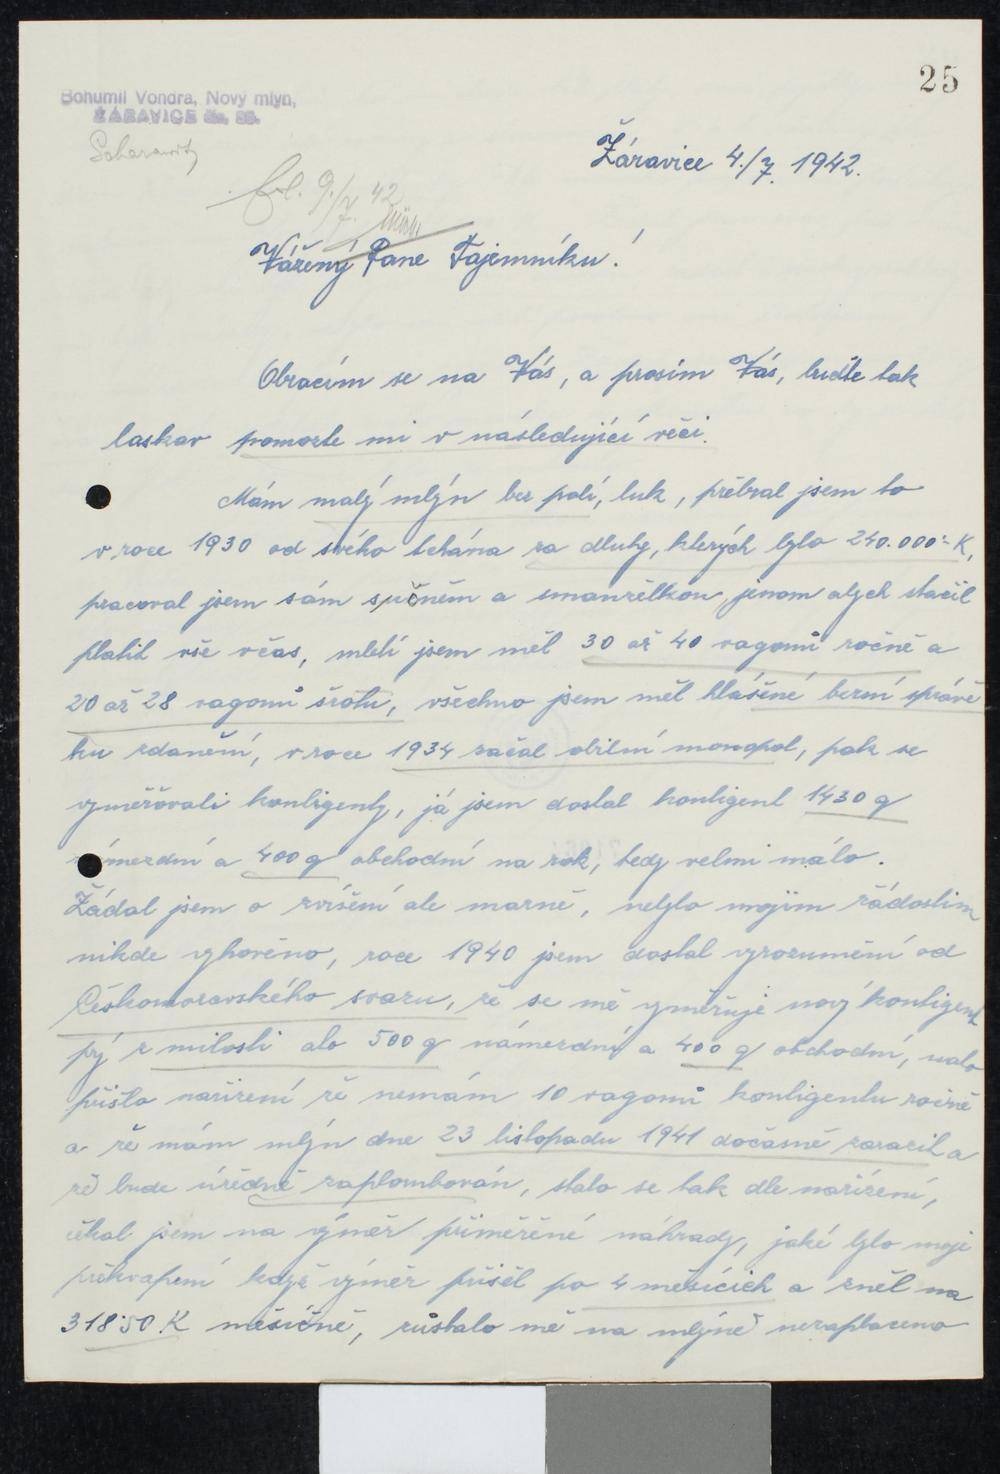 25
Bohumil Vondra, Nový mlýn,
ŽÁRAVICE čs. 55.
Saharawitz
Žáravice 4./7. 1942.
9./7. 42
Vážený Pane Tajemníku!
Obracím se na Vás, a prosím Vás, buďte tak
laskav pomozte mi v následující věci.
Mám malý mlýn bez polí, luk, přebral jsem to
v roce 1930 od svého tchána za dluhy, kterých bylo 240.000·- K,
pracoval jsem sám s učněm a smanželkou, jenom abych stačil
platit vše včas, mletí jsem měl 30 až 40 vagonů ročně a
20 až 28 vagonů šrotu, všechno jsem měl hlášené berní správě
ku zdanění, v roce 1934 začal obilní monopol, pak se
vyměřovali kontigenty, já jsem dostal kontigent 1430 q
námezdní a 400 q obchodní na rok, tedy velmi málo.
Žádal jsem o zvíšení ale marně, nebylo mojím žádostím
nikde vyhověno, roce 1940 jsem dostal vyrozumění od
Českomoravského svazu, že se mě vyměřuje nový kontigent
prý z milosti ato 500 q námezdný a 400 q obchodní, nato
přišlo nařízení že nemám 10 vagonů kontigentu ročně
a že mám mlýn dne 23 listopadu 1941 dočasně zarazit a
že bude úředně zaplombován, stalo se tak dle nařízení,
čekal jsem na výměr přiměřené náhrady, jaké bylo moje
překvapení když výměr přišel po 4 měsících a zněl na
318·50 K měsíčně, zůstalo mě na mlýně nezaplaceno